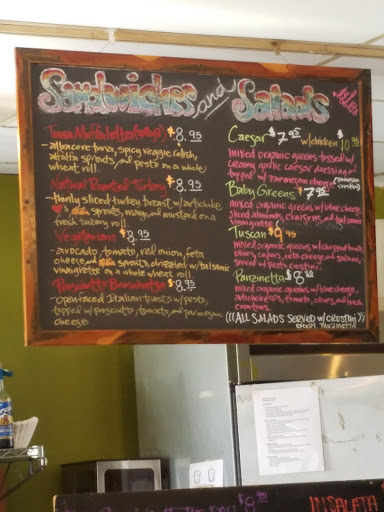 Sandwiches and Salads
Tuna Muffoletta $8.95
-albacore tuna, spicy veggie relish,
alfalfa sprouts and pesto on a whole
wheat roll.
Natural Roasted Turkey $8.95
-thinly sliced turkey breast w/artichoke
♥'s sprouts, mayo, and mustard on a
fresh bakery roll.
Vegetarian $8.95
avocado, tomato, red onion, feta
cheese and sprouts, drizzled w/balsamic
vinaigrette on a whole wheat roll
Prosciutto Bruschetta $8.95
-openfaced Italian toasts w/pesto,
topped w/prosciutto, tomato, and parmesan
cheese
Caesar $7.95 w/chicken $10.95
mixed organic greens tossed w/
creamy garlic caesar dressing and
topped w/parmesan cheese
Baby Greens $7.95
mixed organic greens w/blue cheese,
sliced almonds, craisins, and balsamic
vinaigrette
Tuscan $9.95
mixed organic greens w/chopped
olives, capers, feta cheese and
served w/pesto crostini.
Panzanetta $8.95
mixed organic greens w/blue cheese,
artichoke ♥'s, tomato, olives, and
croutons
(((ALL SALADS SERVED w/CROSTINI))
except Panzanetta
$8.95
INSALATA